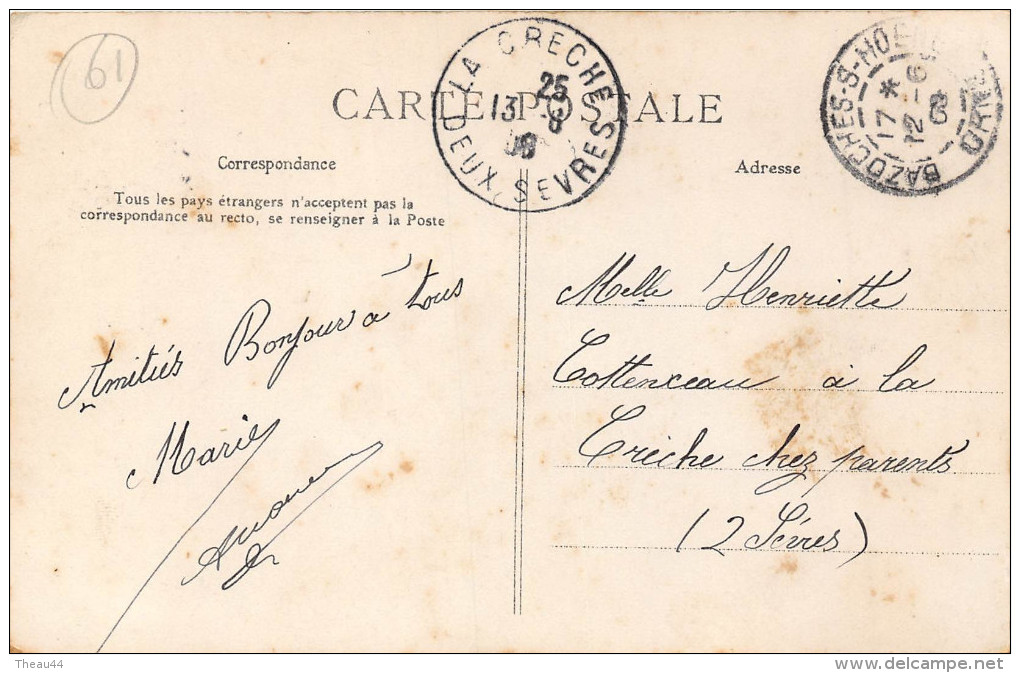 61
LA CRECHE
25
13 -8
08
DEUX SEVRES
BAZOCHES-S-
ORNE
17 *
12 -6
CARTE POSTALE
Correspondance
Adresse
Tous les pays étrangers n'acceptent pas la
correspondance au recto, se renseigner à la Poste
Amitiés Bonjour à tous
Marie
Melle Henriette
Cottenceau à la
Crèche chez parents
(2 Sèvres)
Theau44
delcampe.net